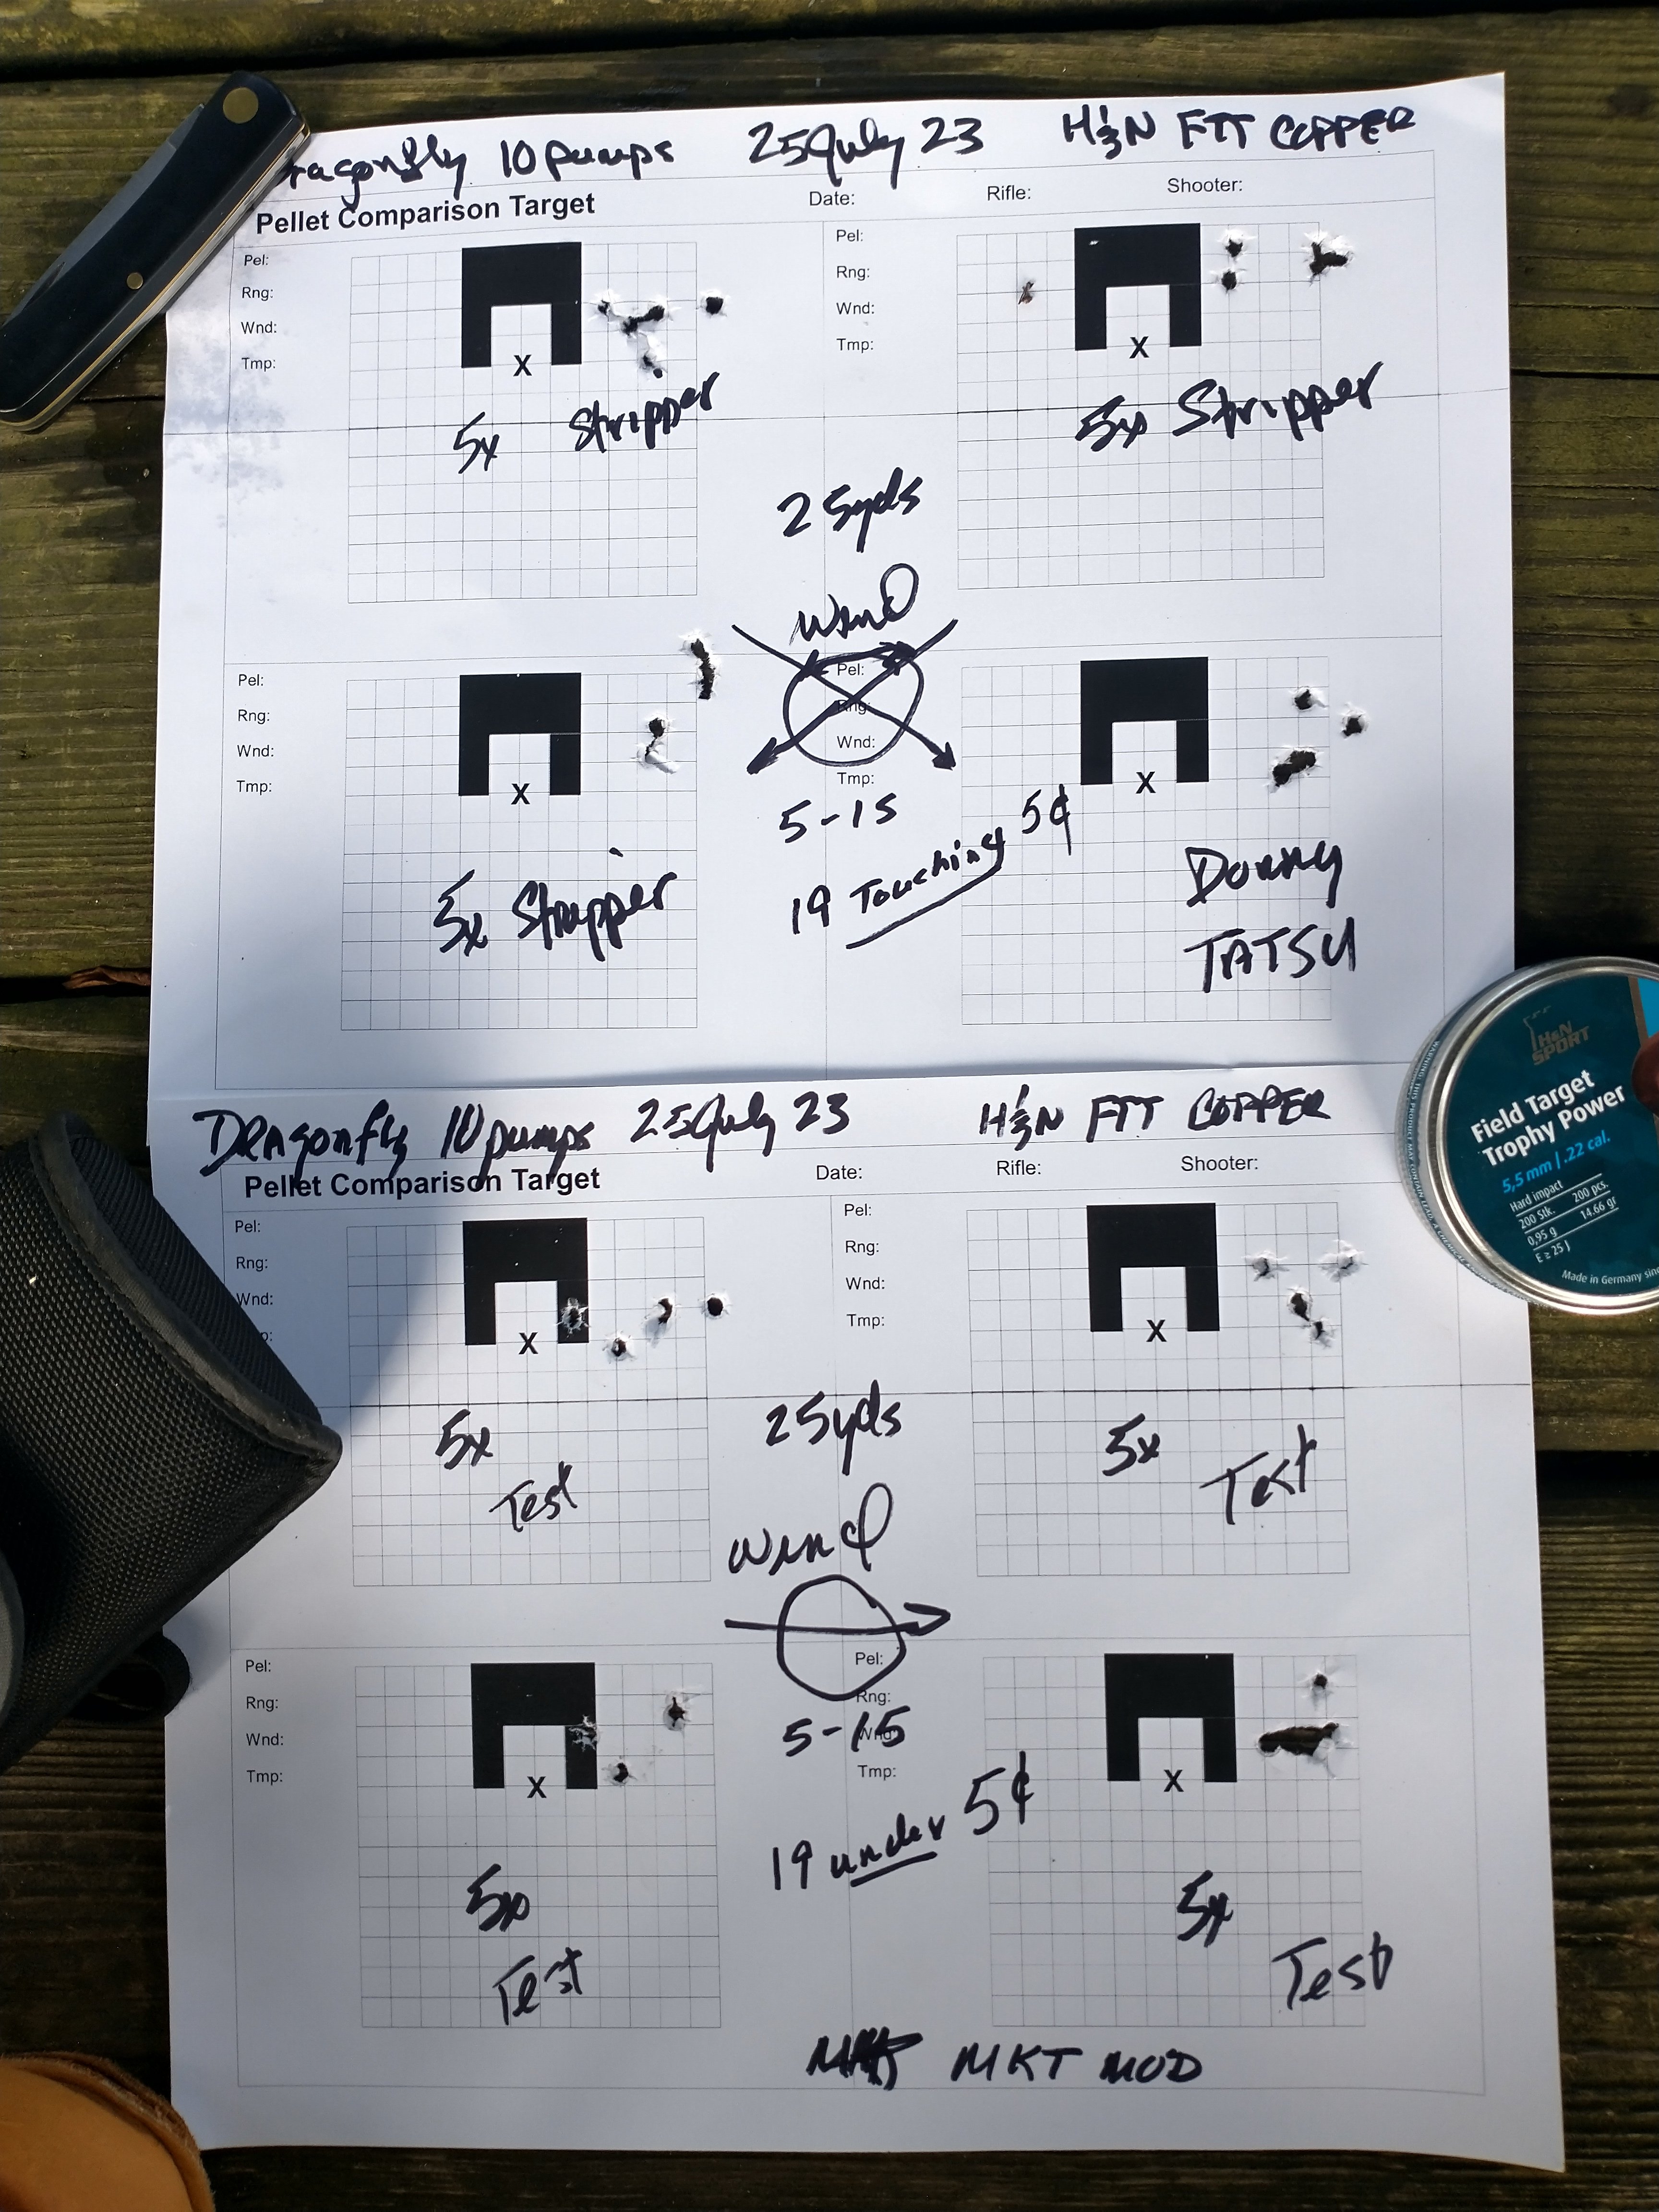 Dragonfly 10 pumps 25 July 23 H&N FTT COPPER
Pellet Comparison Target Date: Rifle: Shooter:
Pel:
Rng:
Wnd:
Tmp:
X
5x Stripper
Pel:
Rng:
Wnd:
Tmp:
X
5x Stripper
25yds
Wind
Pel:
Rng:
Wnd:
Tmp:
X
5x Stripper
Pel:
Rng:
Wnd:
Tmp:
5-15
19 Touching 5¢
X
Donny
TATSU
Dragonfly 10 pumps 25 July 23 H&N FTT COPPER
Pellet Comparison Target Date: Rifle: Shooter:
Pel:
Rng:
Wnd:
X
5x
Test
Pel:
Rng:
Wnd:
Tmp:
X
5x
Test
25yds
Wind
Pel:
Rng:
Wnd:
Tmp:
X
5x
Test
Pel:
Rng:
Wnd:
Tmp:
5-15
19 under 5¢
X
5x
Test
MKT MOD
H&N
SPORT
Field Target
Trophy Power
5,5 mm | .22 cal.
Hard impact
200 Stk. 200 pcs.
0,95 g 14.66 gr
E ≥ 25 J
Made in Germany